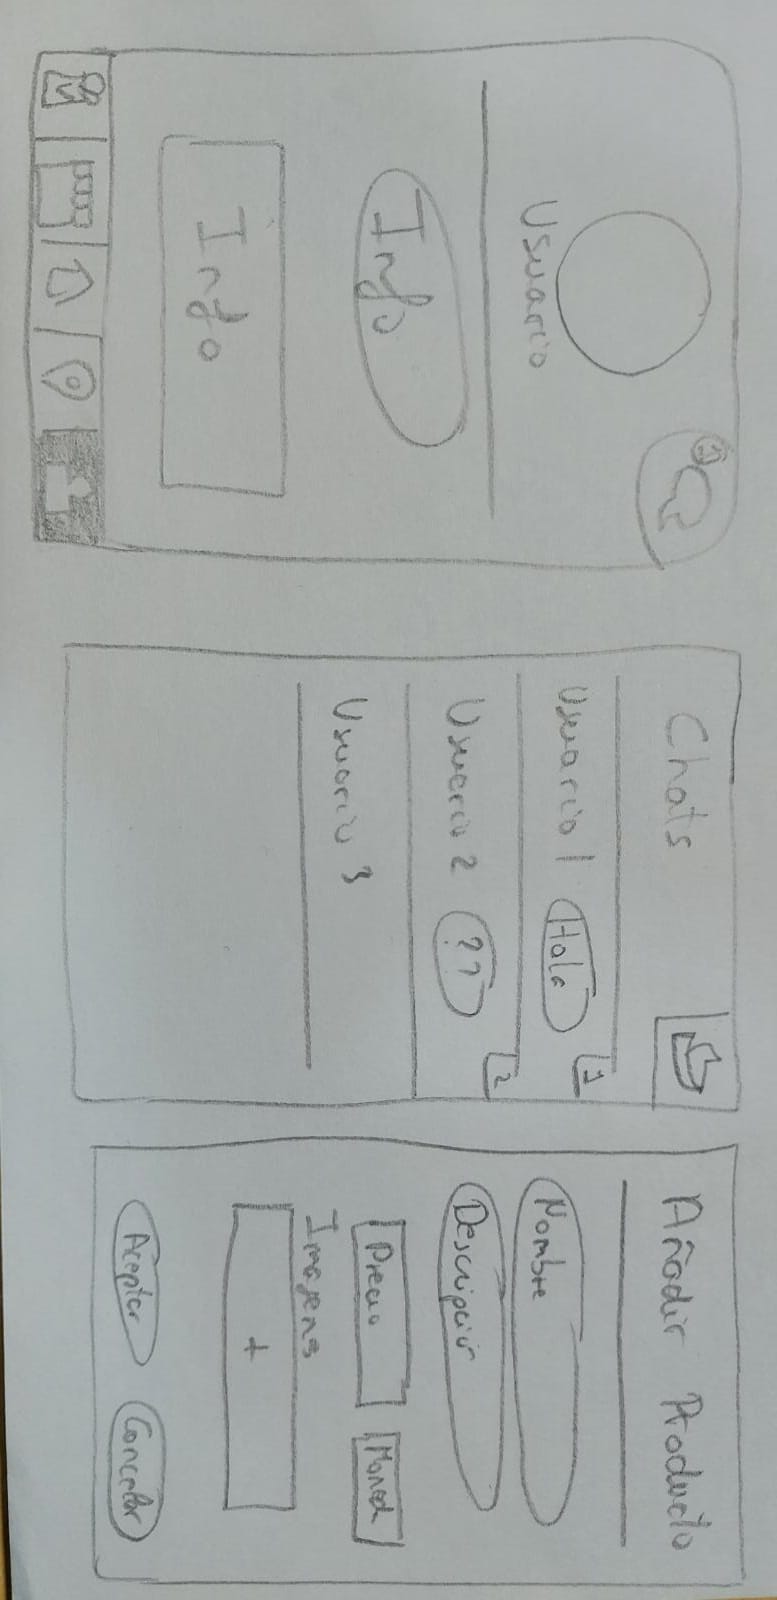 1
Usuario
Info
Info
Chats
Usuario 1 Hola 1
Usuario 2 ?? 2
Usuario 3
Añadir Producto
Nombre
Descripción
Precio Moneda
Imagenes
+
Aceptar Cancelar